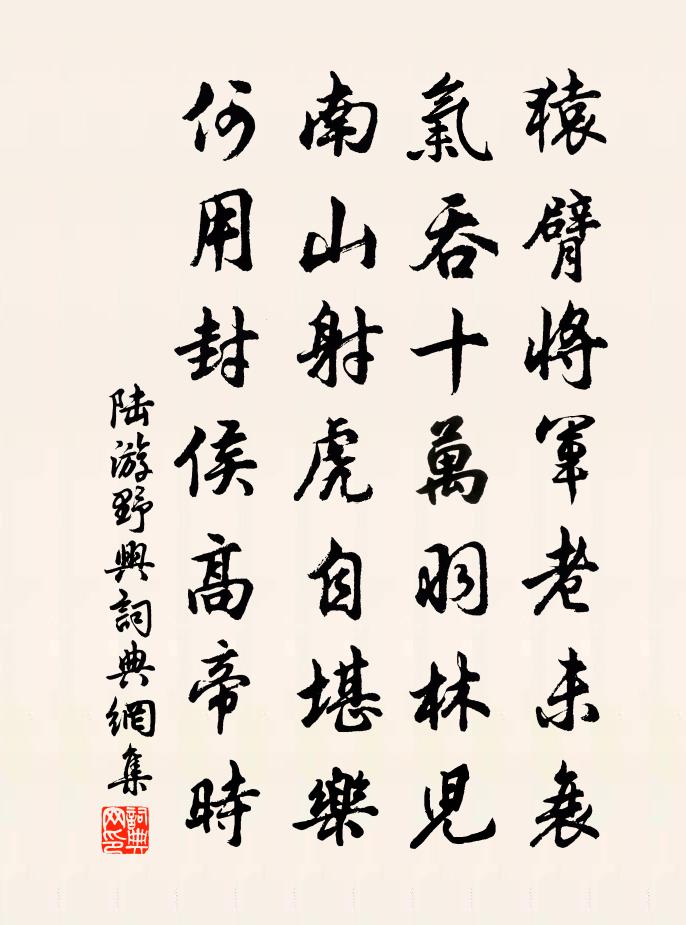 猿臂將軍老未衰
氣吞十萬羽林兒
南山射虎自堪樂
何用封侯高帝時
陆游野興詞典網集
詞典網印